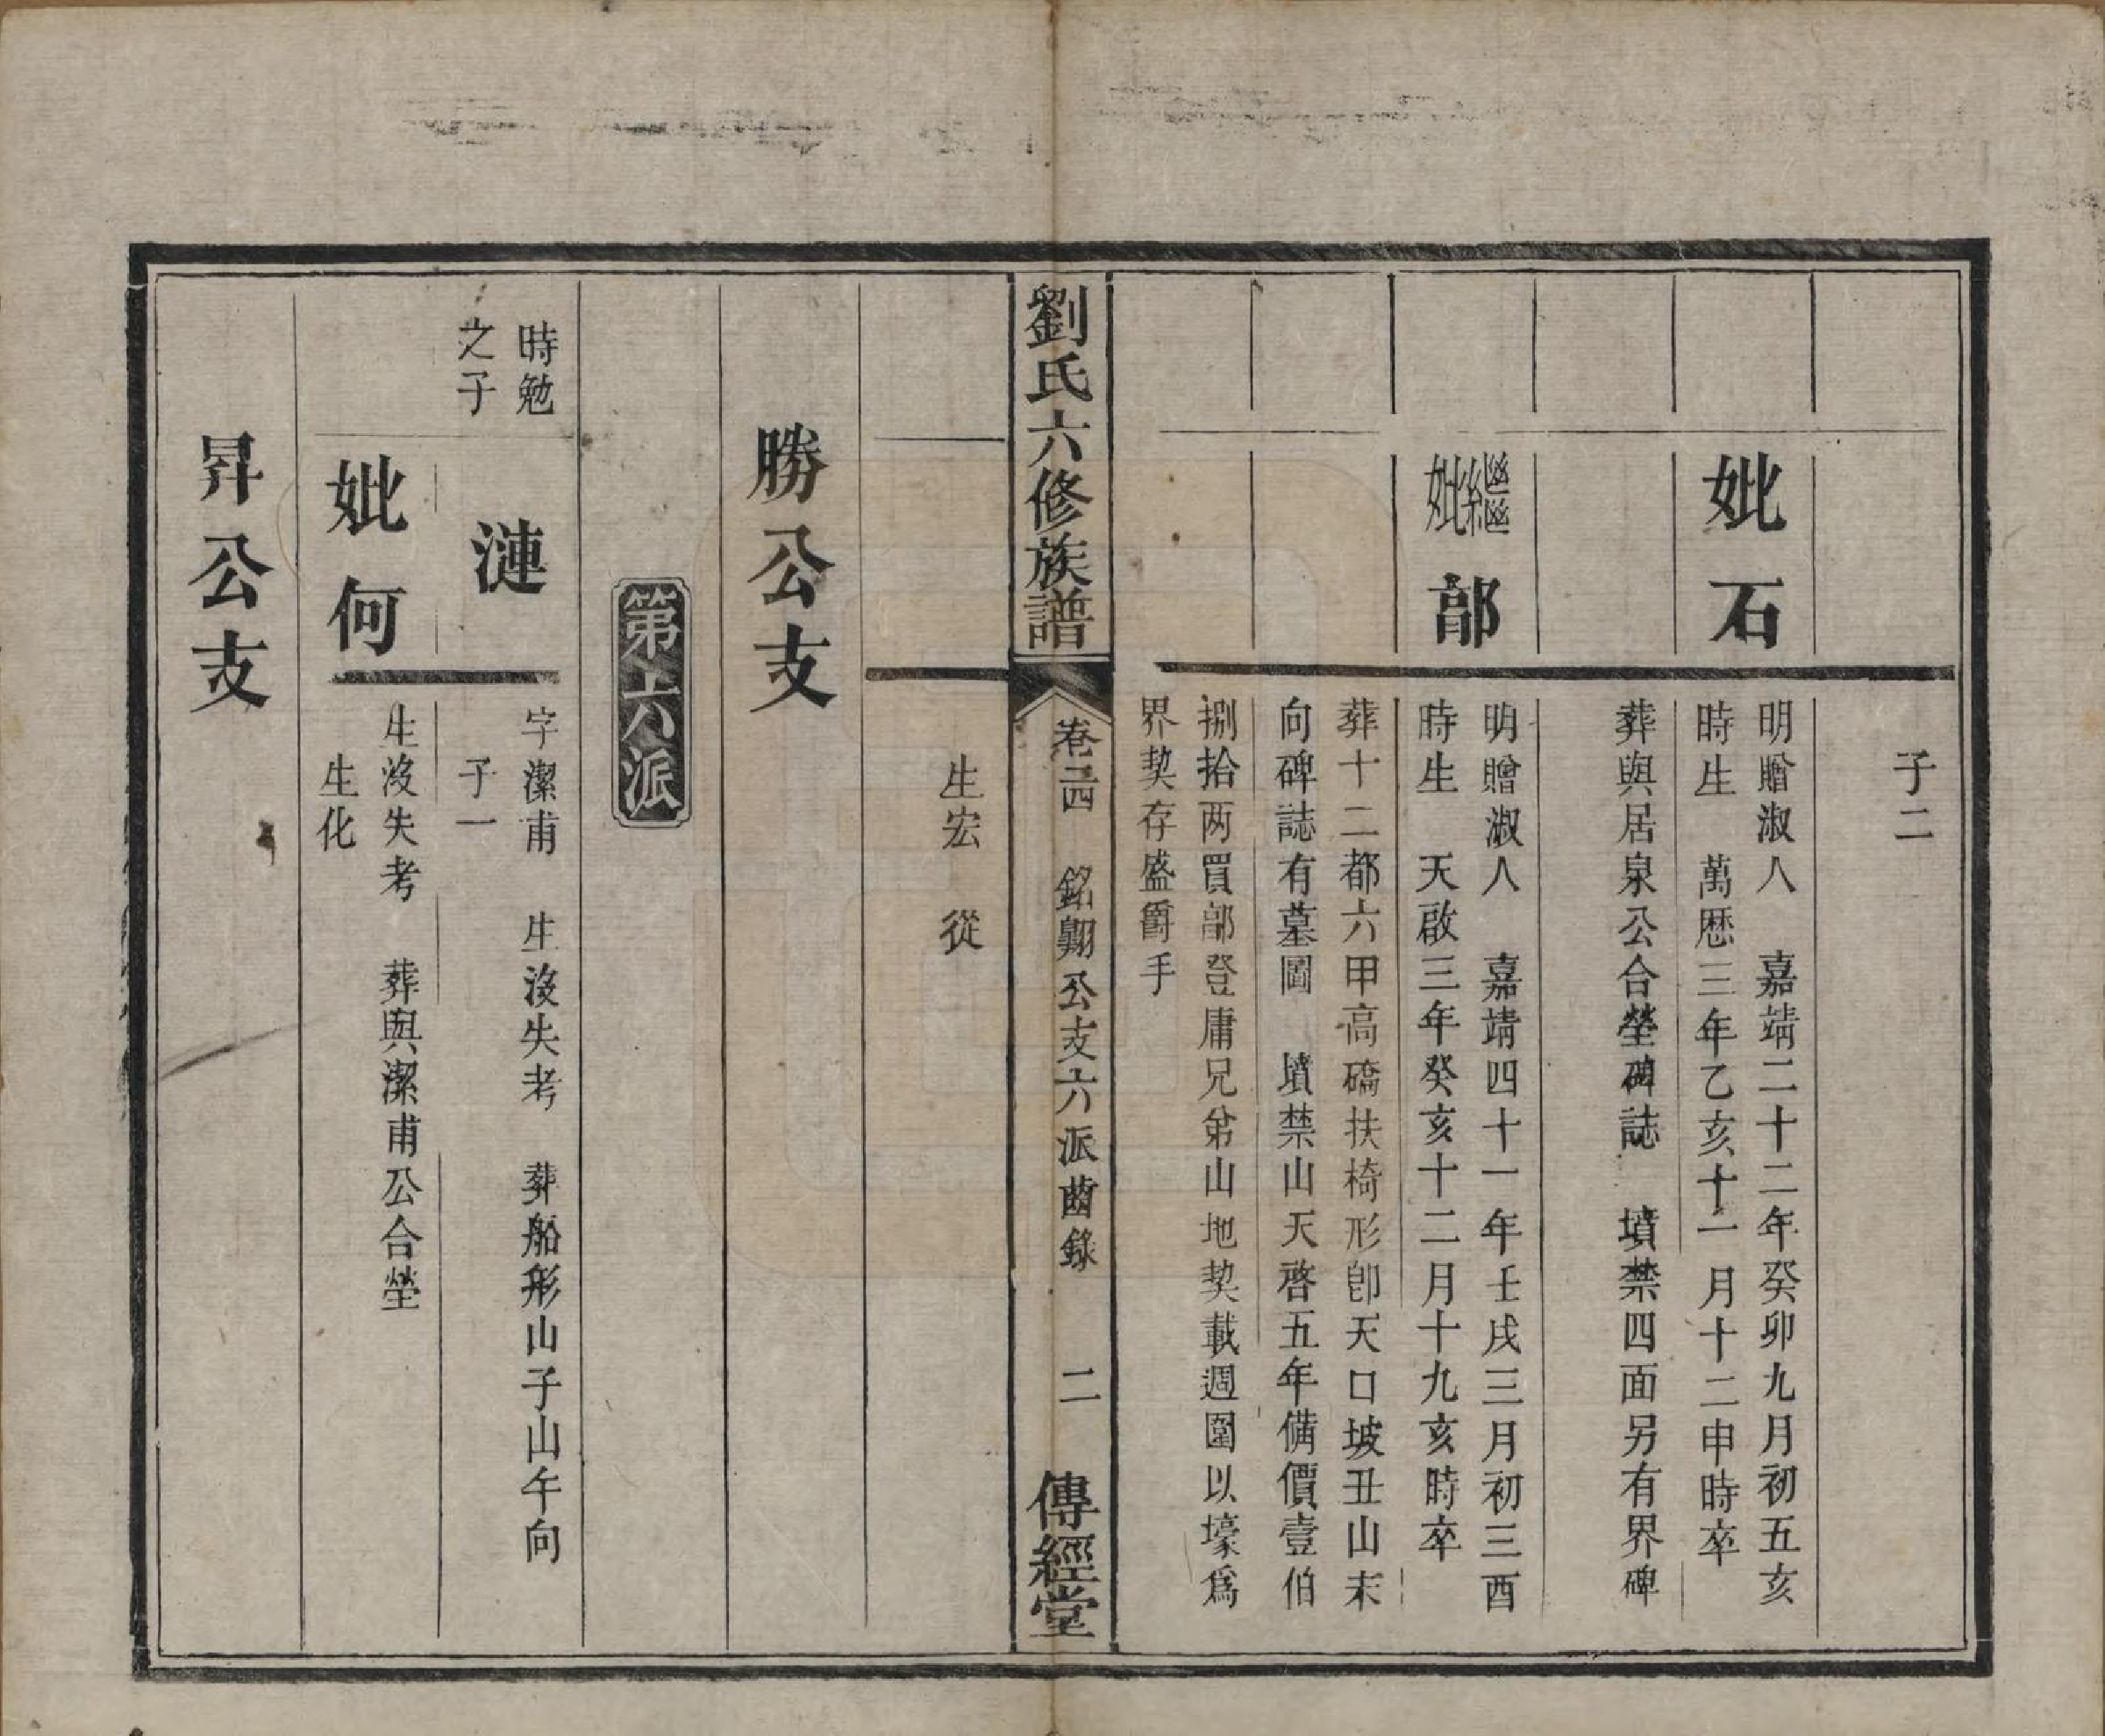 子二
妣石
明贈淑人　嘉靖二十二年癸卯九月初五亥
時生　萬歷三年乙亥十一月十二申時卒
葬與居泉公合塋碑誌　墳禁四面另有界碑
繼妣部
明贈淑人　嘉靖四十一年壬戌三月初三酉
時生　天啟三年癸亥十二月十九亥時卒
葬十二都六甲高磽扶椅形卽天口坡丑山末
向碑誌有墓圖　墳禁山天啓五年備價壹伯
捌拾两買部登庸兄弟山地契載週圍以壕爲
界契存盛爵手
劉氏六修族譜
卷之四　銘翺公支六派齒錄　二
傳經堂
生宏　從
勝公支
第六派
時勉
之子
漣
字潔甫　生沒失考　葬船形山子山午向
子一
妣何
生沒失考　葬與潔甫公合塋
生化
昇公支